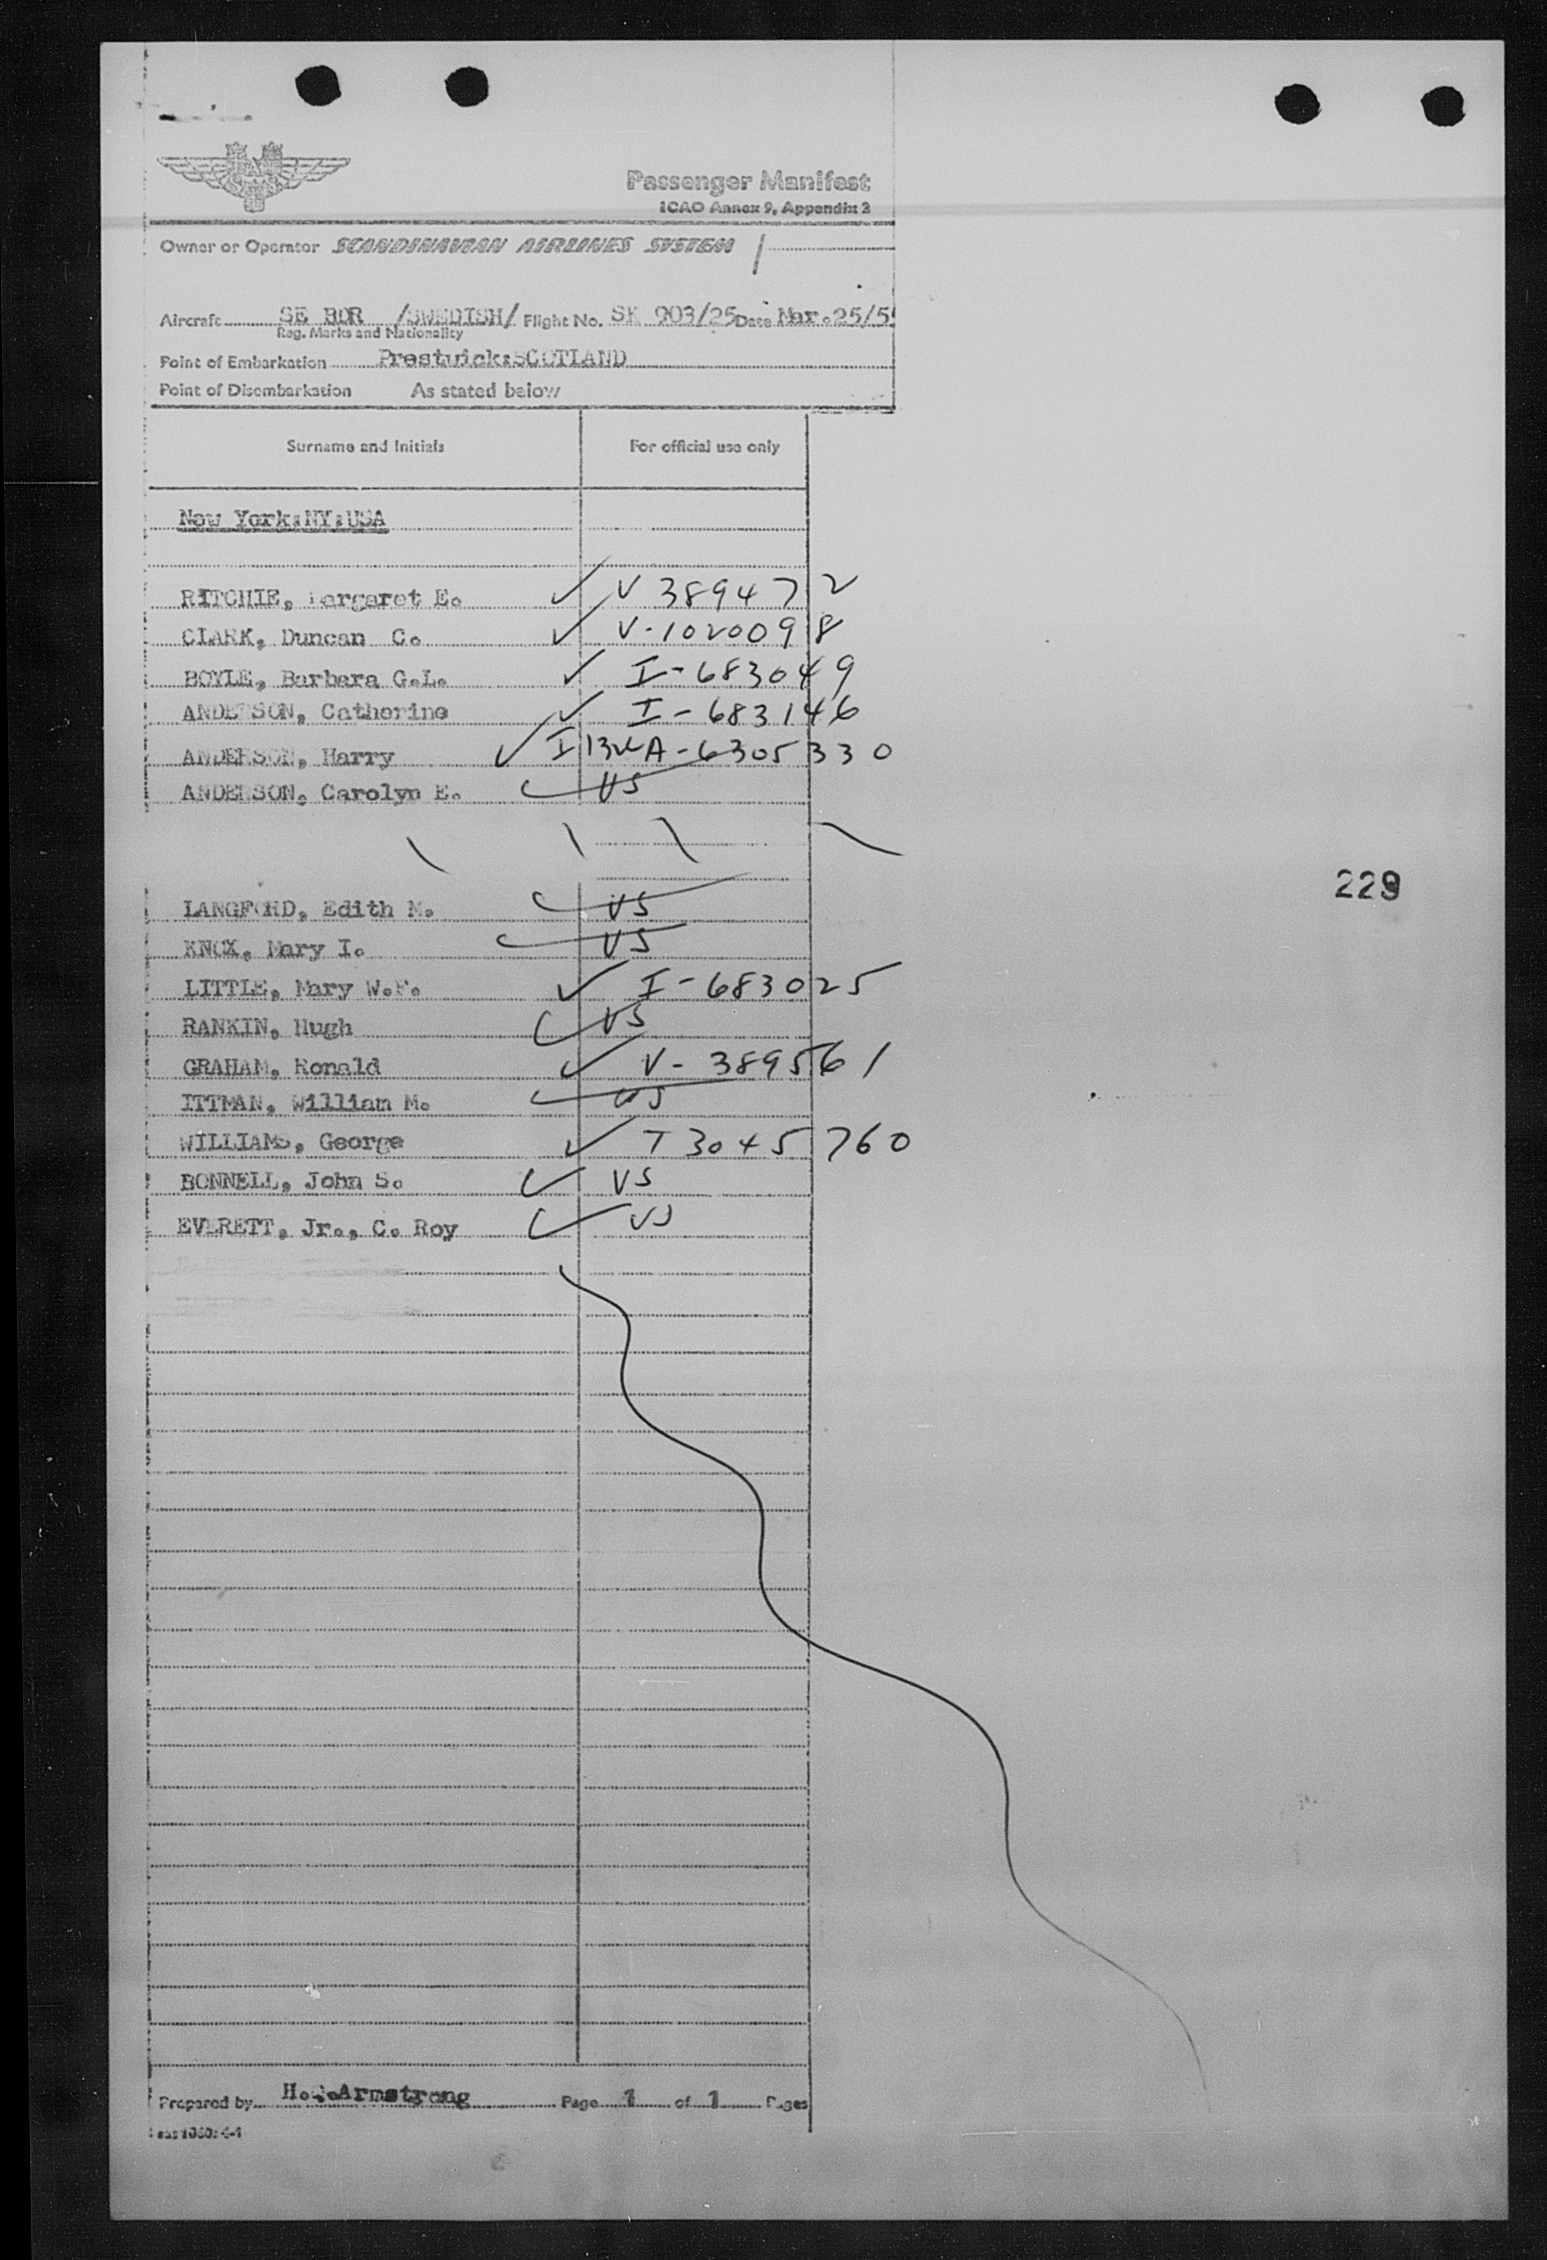 Passenger Manifest
ICAO Annex 9, Appendix 2
Owner or Operator SCANDINAVIAN AIRLINES SYSTEM
Aircraft SE BDR /SWEDISH/ Flight No. SK 903/25 Date Mar.25/5
Reg. Marks and Nationality
Point of Embarkation Prestwick:SCOTLAND
Point of Disembarkation As stated below
Surname and Initials For official use only
New York:NY:USA
RITCHIE, Margaret E. V 389472
CLARK, Duncan C. V-1020098
BOYLE, Barbara G.L. I-683049
ANDERSON, Catherine I-683146
ANDERSON, Harry I 132 A-6305330
ANDERSON, Carolyn E. US
LANGFORD, Edith M. US
229
KNOX, Mary I. US
LITTLE, Mary W.F. I-683025
RANKIN, Hugh US
GRAHAM, Ronald V-389561
ITTMAN, William M. US
WILLIAMS, George T 3045760
BONNELL, John S. US
EVERETT, Jr., C. Roy US
Prepared by Armstrong Page 1 of 1 Pages